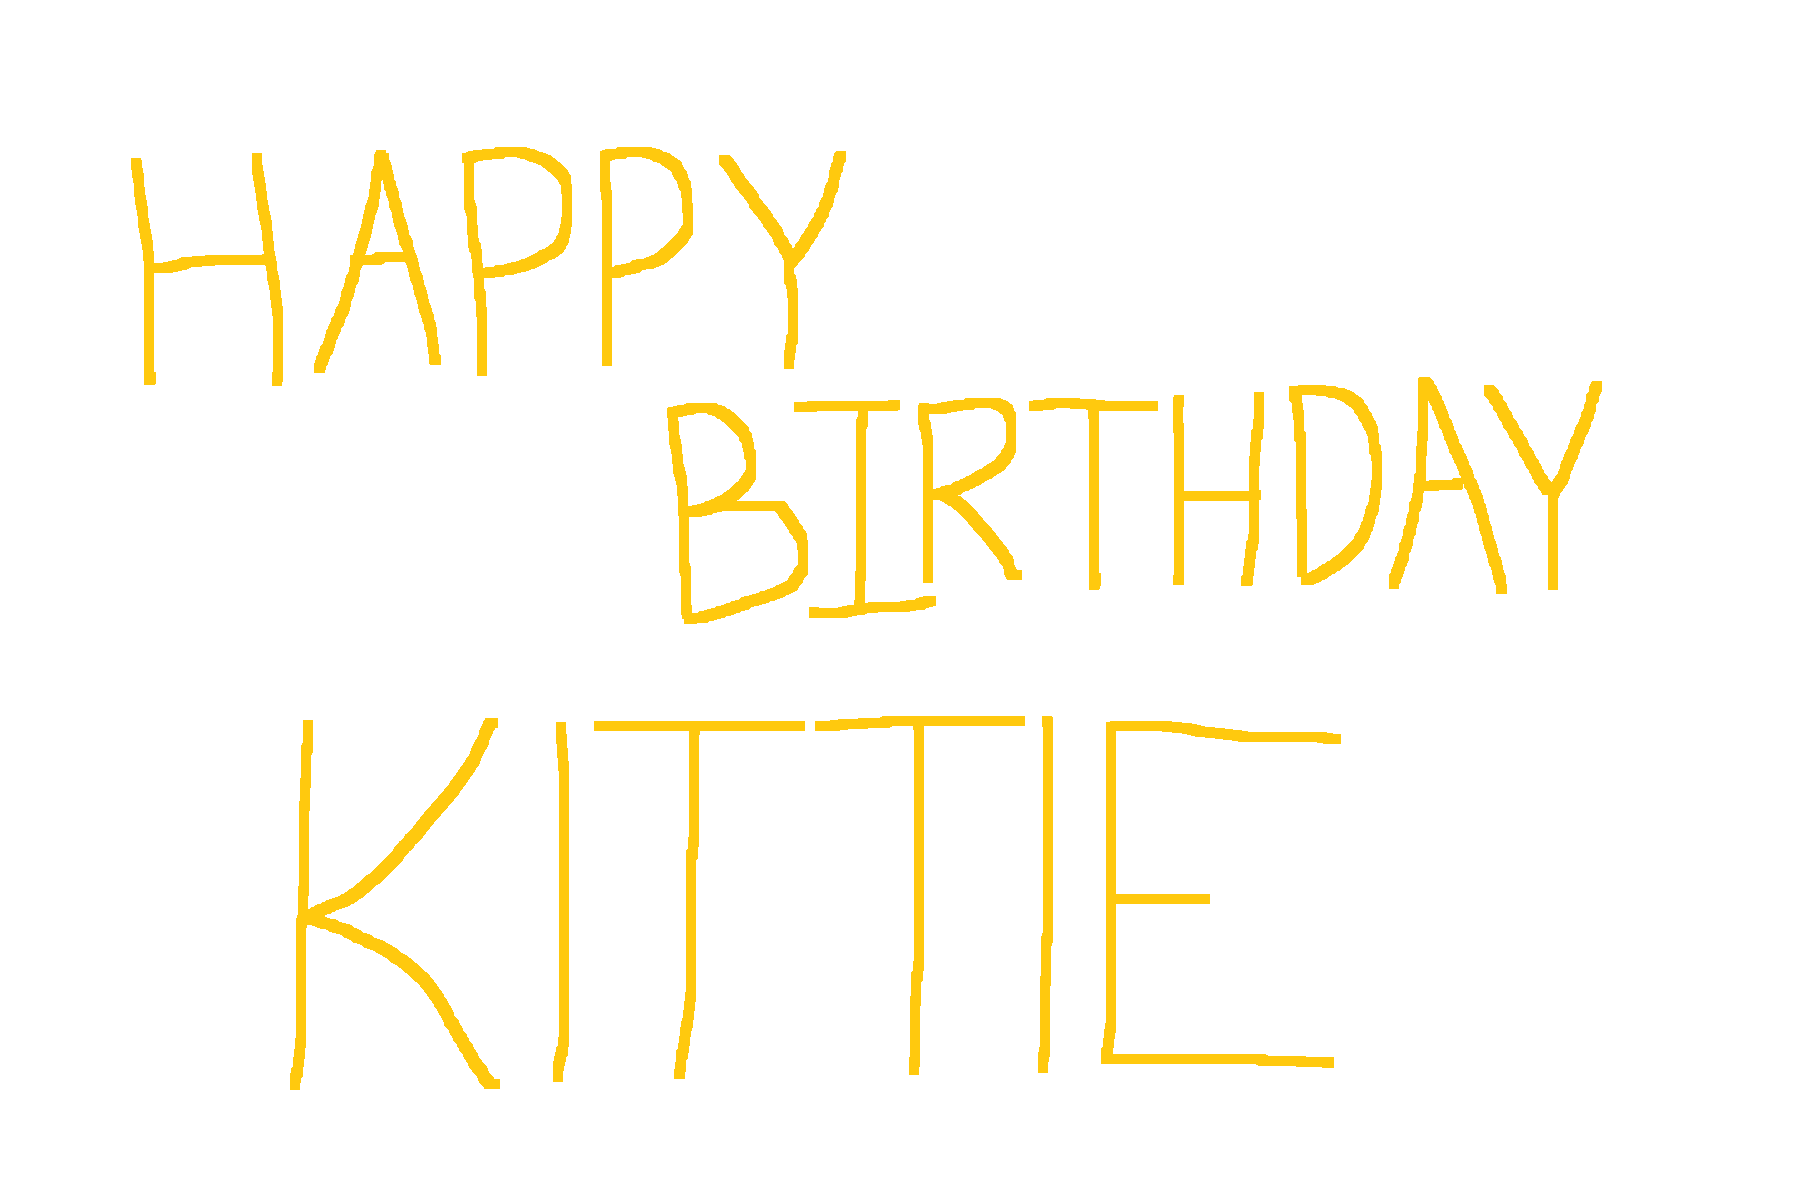 HAPPY
BIRTHDAY
KITTIE